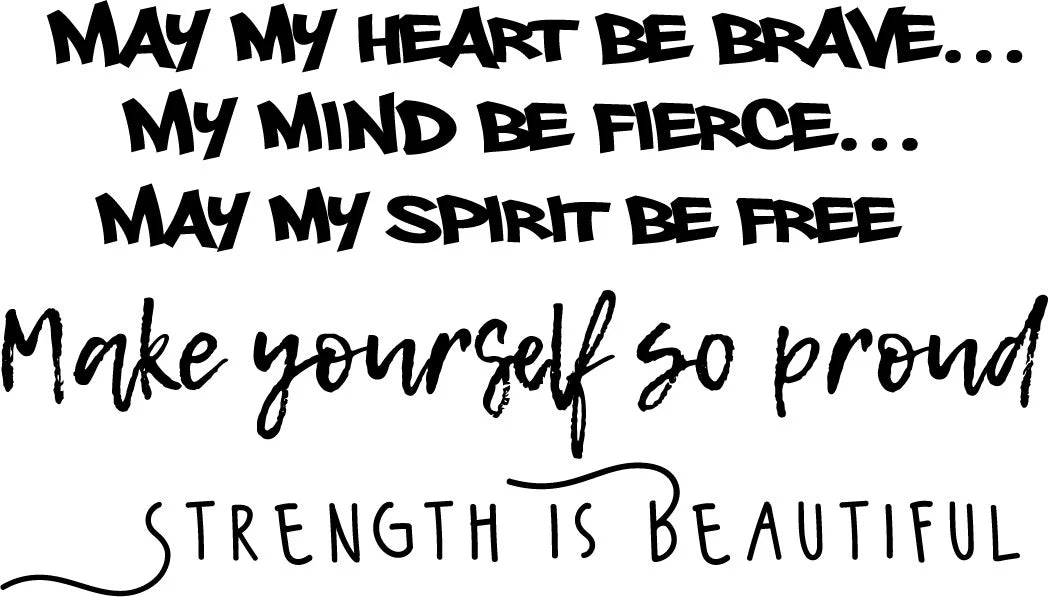 MAY MY HEART BE BRAVE...
MY MIND BE FIERCE...
MAY MY SPIRIT BE FREE
Make yourself so proud
STRENGTH IS BEAUTIFUL